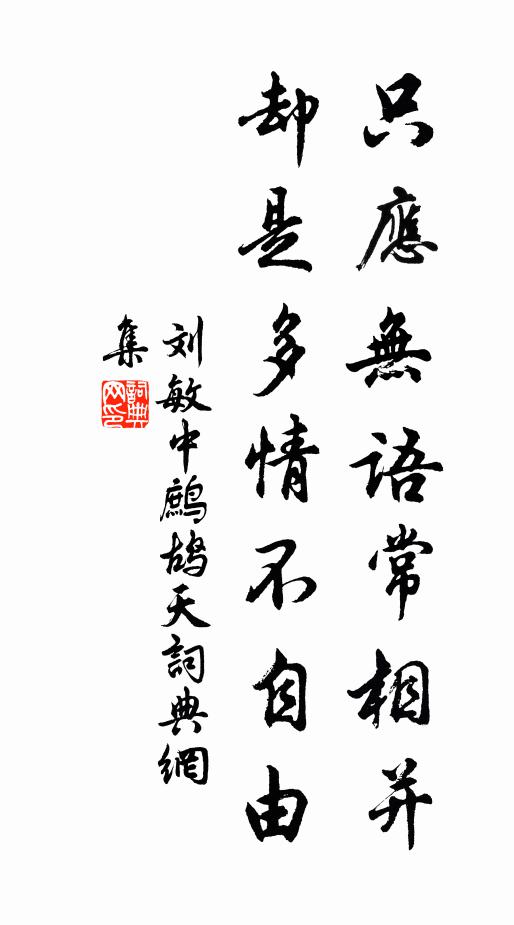 只應無語常相并
却是多情不自由
刘敏中鷓鴣天詞典網
集
詞典
网印